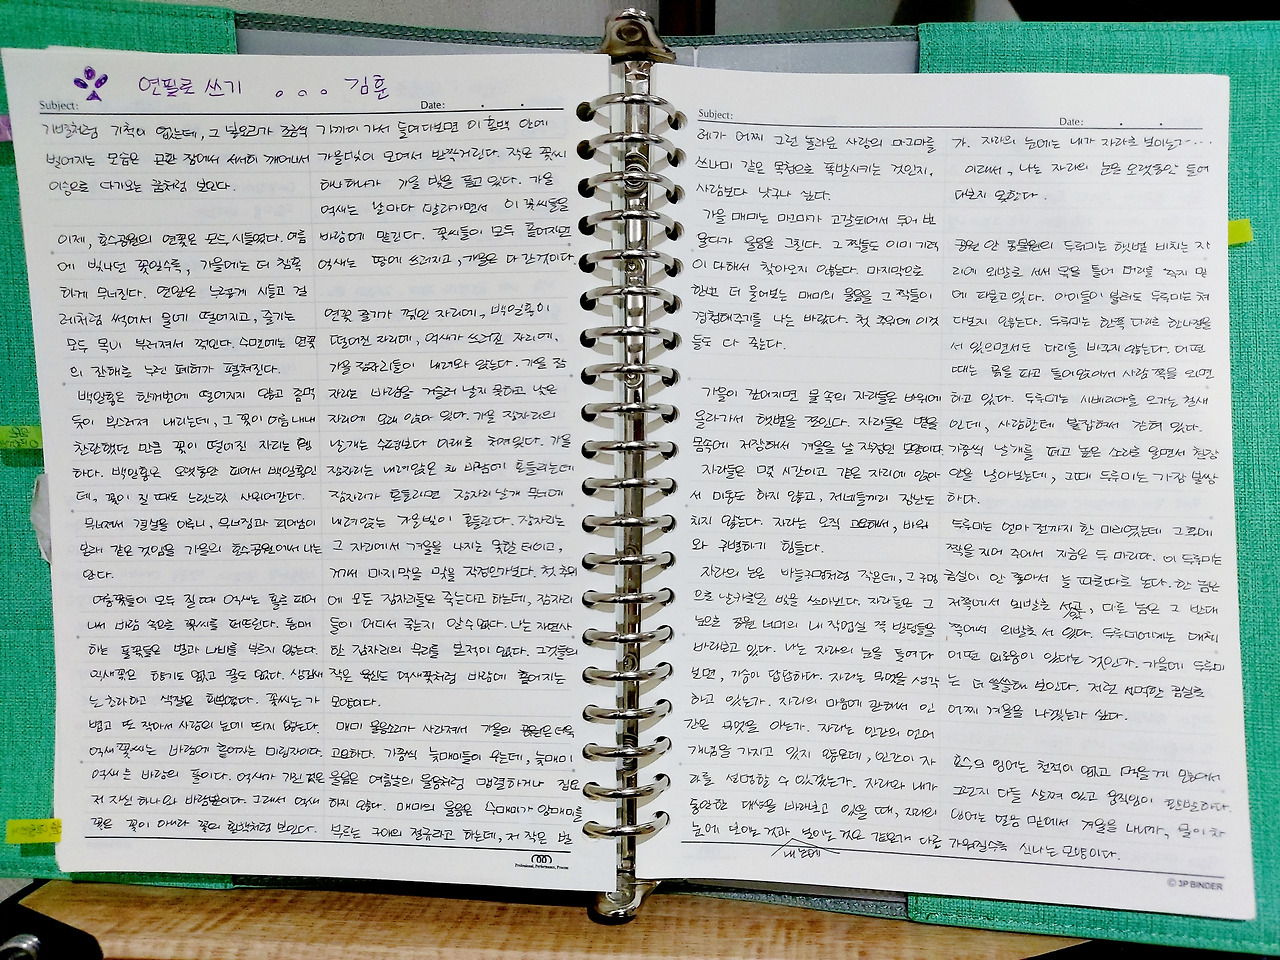 연필로 쓰기 。。。 김훈
Subject:
Date:
기척이 없는데, 그 날
벌어지는 모습은 곤한 잠에서 서서히 깨어나서
이승으로 다가오는 꿈처럼 보인다.
이제, 호수공원의 연꽃은 모두 시들었다. 여름
에 빛나던 꽃일수록, 가을에는 더 참혹
하게 무너진다. 연잎은 누렇게 시들고 걸
레처럼 썩어서 물에 떨어지고, 줄기는
모두 목이 부러져서 꺾인다. 수면에는 연꽃
의 잔해로 누런 폐허가 펼쳐진다.
백일홍은 한꺼번에 떨어지지 않고 좀먹
듯이 부스러져 내리는데, 그 꽃이 여름내내
찬란했던 만큼 꽃이 떨어진 자리는
하다. 백일홍은 오랫동안 피어서 백일홍인
데, 꽃이 질 때도 느릿느릿 사위어간다.
무너져서 결실을 이루니, 무너짐과 피어남이
본래 같은 것임을 가을의 호수공원에서 나는
안다.
여름꽃들이 모두 질 때 억새는 홀로 피어
나서 바람 속으로 꽃씨를 퍼뜨린다. 풍매
하는 풀꽃들은 벌과 나비를 부르지 않는다.
억새꽃은 향기도 없고 꿀도 없다. 생김새
는 초라하고 색깔은 희뿌옇다. 꽃씨는 가
볍고 또 작아서 사람의 눈에 띄지 않는다.
억새꽃씨는 바람에 흩어지는 미립자이다.
억새는 바람의 풀이다. 억새가 가진 것은
저 자신 하나와 바람뿐이다. 그래서 억새
꽃은 꽃이 아니라 꽃의 혼백처럼 보인다.
가까이 가서 들여다보면 이 혼백 안에
가을빛이 모여서 반짝거린다. 작은 꽃씨
하나하나가 가을 빛을 품고 있다. 가을
억새는 날마다 말라가면서 이 꽃씨들을
바람에 맡긴다. 꽃씨들이 모두 흩어지면
억새는 땅에 쓰러지고, 가을은 다 간것이다.
연꽃 줄기가 꺾인 자리에, 백일홍이
떨어진 자리에, 억새가 쓰러진 자리에,
가을 잠자리들이 내려와 앉는다. 가을 잠
자리는 바람을 거슬러 날지 못하고, 낮은
자리에 오래 앉아 있다. 가을 잠자리의
날개는 수평보다 아래로 쳐져있다. 가을
잠자리는 내려앉은 채 바람에 흔들리는데
잠자리가 흔들리면 잠자리 날개 무늬에
내려앉는 가을빛이 흔들린다. 잠자리는
그 자리에서 겨울을 나지는 못할 터이고,
거기서 마지막을 맞을 작정인가보다. 첫 추위
에 모든 잠자리들은 죽는다고 하는데, 잠자리
들이 어디서 죽는지 알 수 없다. 나는 자연사
한 잠자리의 무리를 본적이 없다. 그것들의
작은 육신도 억새꽃처럼 바람에 흩어지는
모양이다.
매미 울음소리가 사라져서 가을의 공원은 더욱
고요하다. 가끔씩 늦매미들이 우는데, 늦매미
울음은 여름날의 울음처럼 맹렬하거나 길
하지 않다. 매미의 울음은 수매미가 암매미를
부르는 구애의 절규라고 하는데, 저 작은 벌
Professional, Performance, Process
Subject:
Date:
레가 어찌 그런 놀라운 사랑의 마그마를
쓰나미 같은 목청으로 폭발시키는 것인지,
사람보다 낫구나 싶다.
가을 매미는 마그마가 고갈되어서 두어 번
울다가 울음을 그친다. 그 짝들도 이미 기력
이 다해서 찾아오지 않는다. 마지막으로
한번 더 울어보는 매미의 울음을 그 짝들이
경청해주기를 나는 바랐다. 첫 추위에 이것
들도 다 죽는다.
가을이 깊어지면 물 속의 자라들은 바위에
올라가서 햇볕을 쪼인다. 자라들은 볕을
몸속에 저장해서 겨울을 날 작정인 모양이다.
자라들은 몇 시간이고 같은 자리에 앉아
서 미동도 하지 않고, 저네들끼리 장난도
치지 않는다. 자라는 오직 고요해서, 바위
와 구별하기 힘들다.
자라의 눈은 바늘구멍처럼 작은데, 그 구멍
으로 날카로운 빛을 쏘아낸다. 자라들은 그
눈으로 공원 너머의 내 작업실 쪽 빌딩들을
바라보고 있다. 나는 자라의 눈을 들여다
보면, 가슴이 답답하다. 자라는 무엇을 생각
하고 있는가. 자라의 마음에 관해서 인
간은 무엇을 아는가. 자라는 인간의 언어
개념을 가지고 있지 않은데, 인간이 자
라를 설명할 수 있겠는가. 자라와 내가
동일한 대상을 바라보고 있을 때, 자라의
눈에 보이는 것과 내눈에 보이는 것은 같은가 다른
가. 자라의 눈에는 내가 자라로 보이는가....
이래서, 나는 자라의 눈을 오랫동안 들여
다보지 못한다.
공원 안 동물원의 두루미는 햇볕 비치는 자
리에 외발로 서서 목을 틀어 머리를 죽지 밑
에 파묻고 있다. 아이들이 불러도 두루미는 쳐
다보지 않는다. 두루미는 한쪽 다리로 한나절을
서 있으면서도 다리를 바꾸지 않는다. 어떤
때는 흙을 파고 들어앉아서 사람 쪽을 외면
하고 있다. 두루미는 시베리아를 오가는 철새
인데, 사람한테 붙잡혀서 갇혀 있다.
가끔씩 날개를 펴고 높은 소리로 울면서 철장
안을 날아보는데, 그때 두루미는 가장 불쌍
하다.
두루미는 얼마 전까지 한 마리였는데 그 후에
짝을 지어 주어서 지금은 두 마리다. 이 두루미는
금실이 안 좋아서 늘 따로따로 논다. 한 놈은
저쪽에서 외발로 서고, 다른 놈은 그 반대
쪽에서 외발로 서 있다. 두루미에게는 대체
어떤 외로움이 있다는 것인가. 가을에 두루미
는 더 쓸쓸해 보인다. 저런 서먹한 금실로
어찌 겨울을 나겠는가 싶다.
호수의 잉어는 천적이 없고 먹을 게 많아서
그런지 다들 살쪄 있고 움직임이 활발하다.
잉어는 얼음 밑에서 겨울을 나니까, 물이 차
가워질수록 신나는 모양이다.
© 3P BINDER